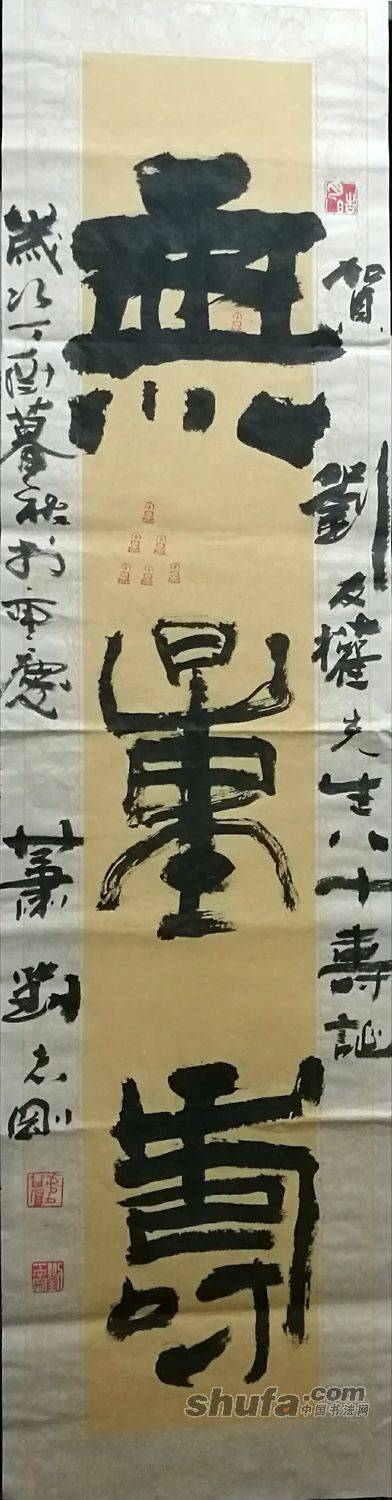 無量壽
賀
劉友權先生八十壽誕
歲次丁酉暮秋於重慶
蕭劉志剛
shufa.com
中国书法网